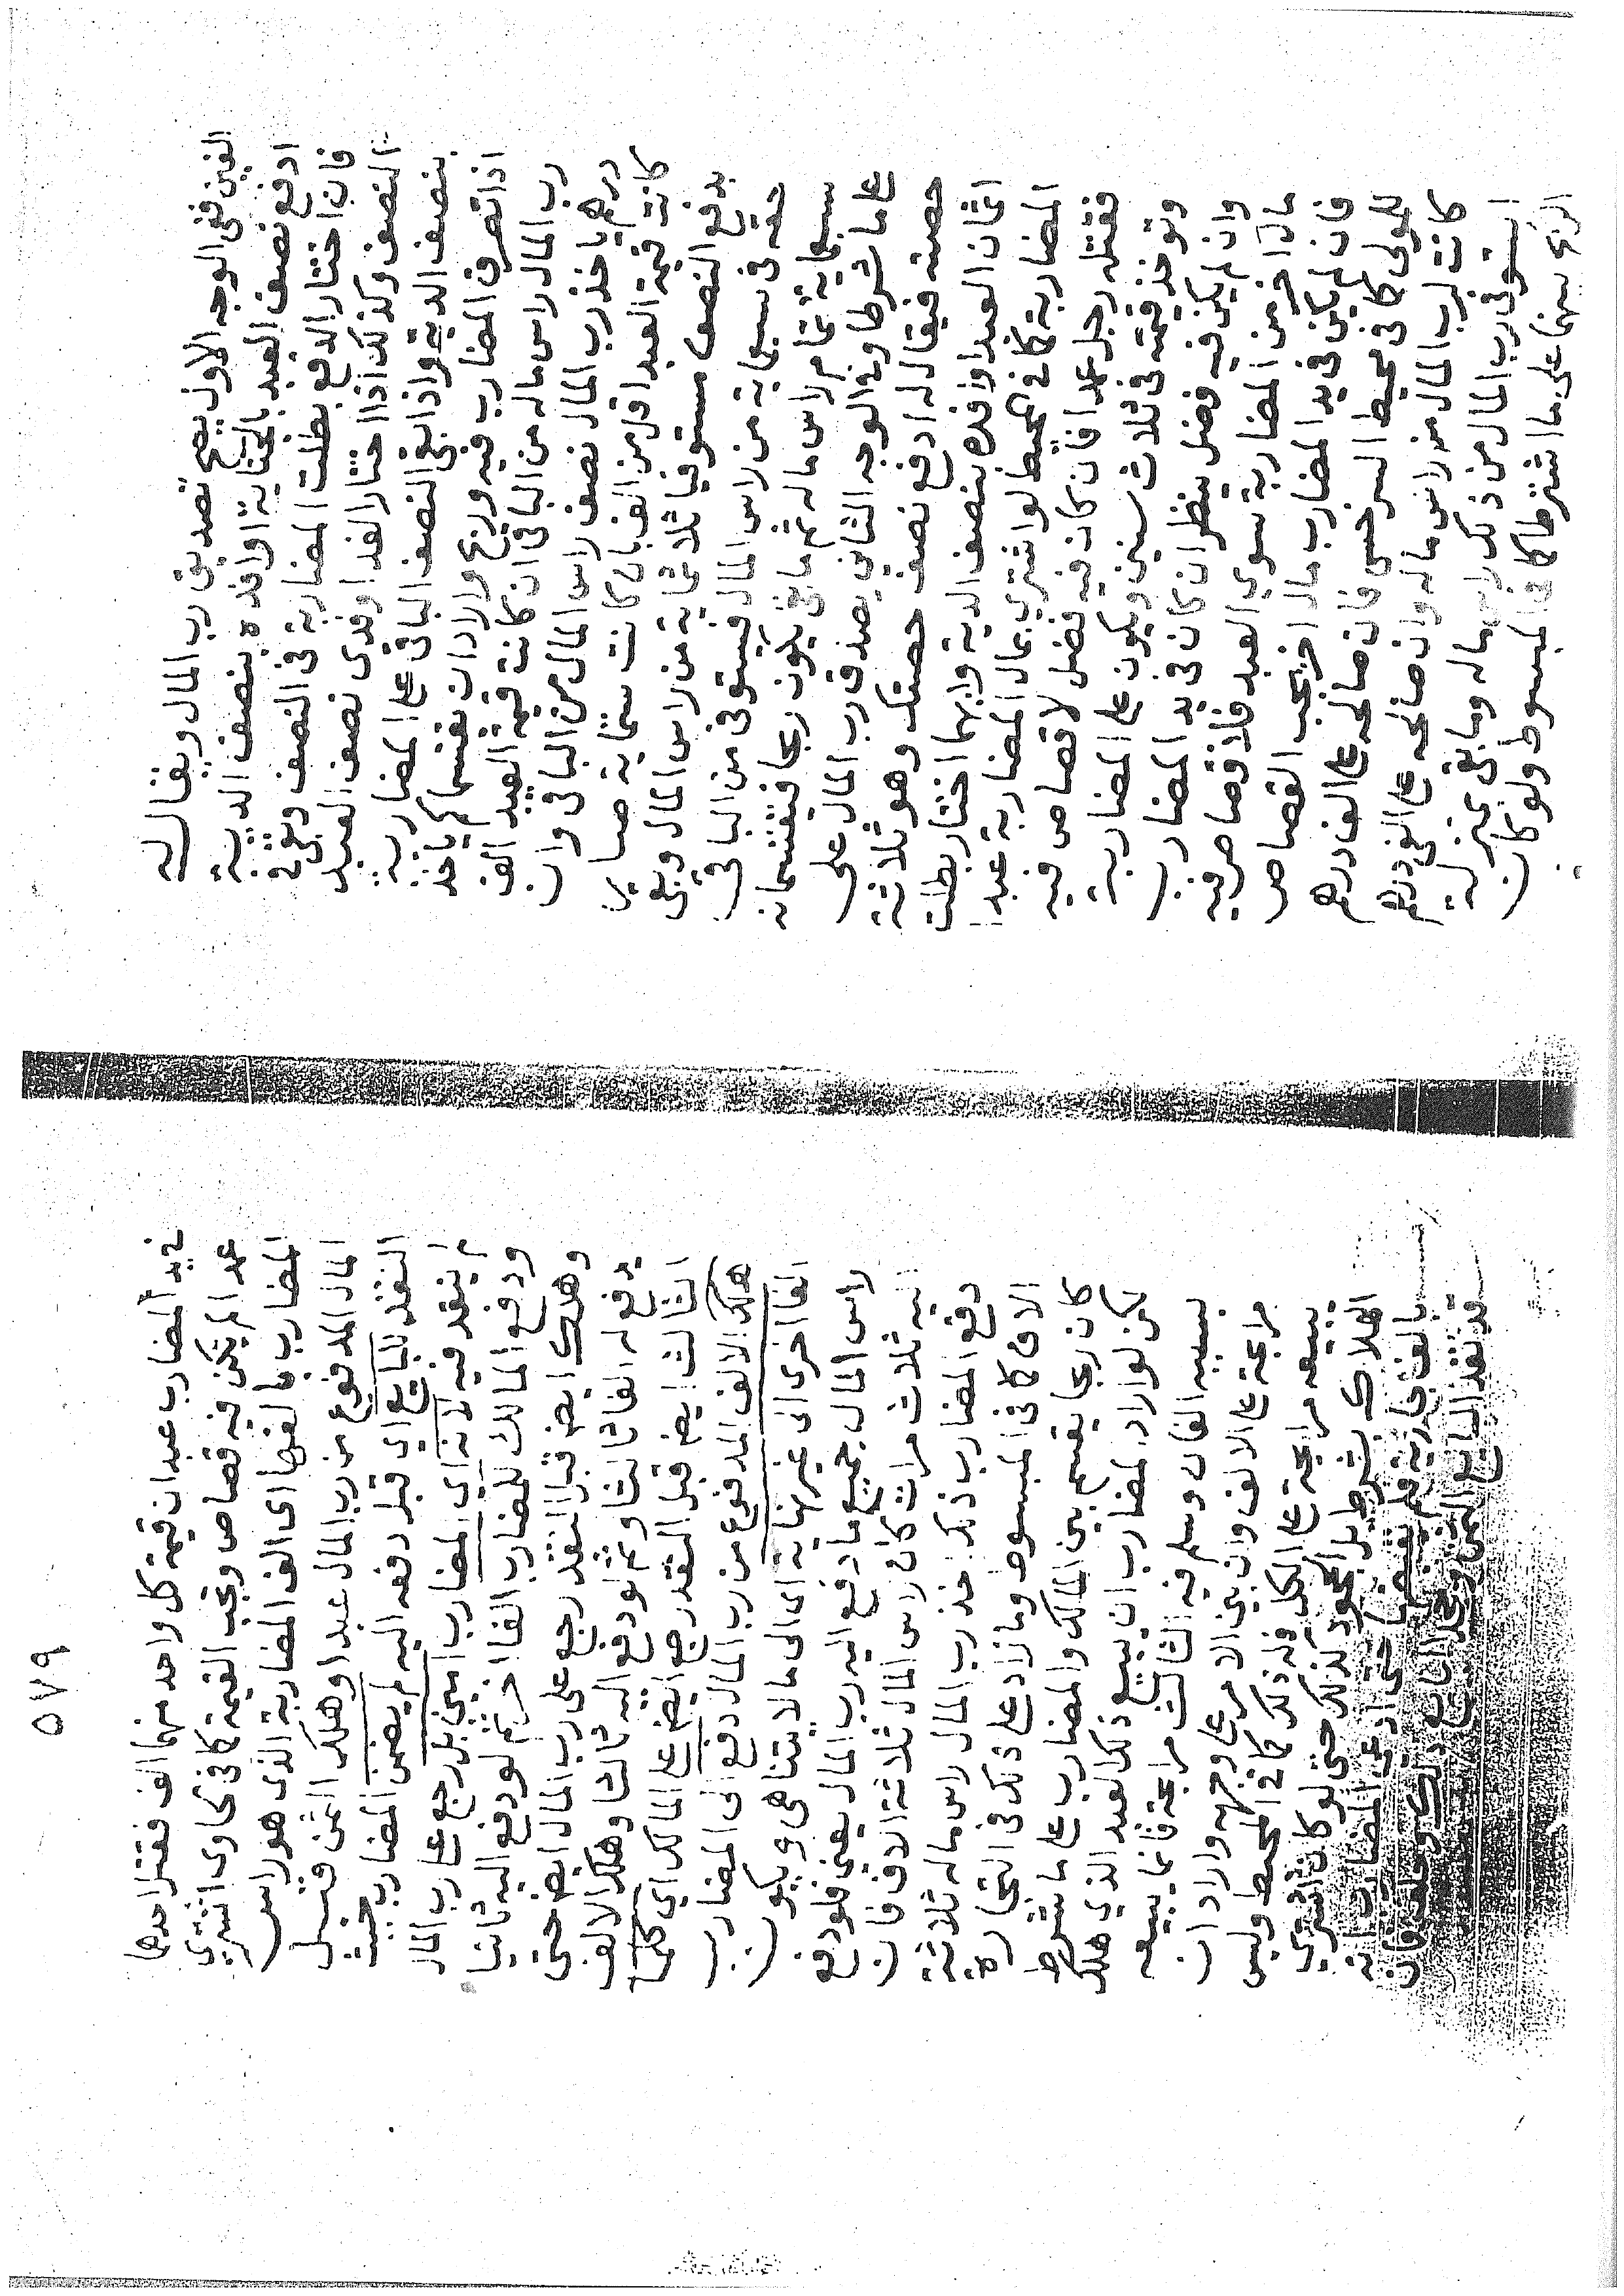 الفين ففى الوجه الاول يصح تصديق رب المال ويقال له
ادفع نصف العبد بالجناية او افده بنصف الدية
فان اختار الدفع بطلت المضاربة فى النصف وبقى فى
النصف وكذلك اذا اختار الفدا وفدى نصف العبد
بنصف الدية واذا بقى النصف الباقى على المضاربة
اذا تصرف المضارب فيه وربح وارادان يقتسما ياخذ
رب المال راس ماله من الباقى ان كانت قيمة العبد الف
درهم ياخذ رب المال نصف راس المال من الباقى وان
كانت قيمة العبد اقل من الف بان كانت ستماية صار
بدفع النصف مستوفيا ثلاثماية من راس المال وبقى
حقه فى سبعماية من راس المال فيستوفى من الباقى
سبعماية تمام راس ماله ثم ما بقى يكون ربحا فيقتسمانه
على ما شرطا وفى الوجه الثانى يصدق رب المال على
حصته فيقال له ادفع نصف حصتك وهو ثلاثة
اثمان العبد او افده بنصف الدية وايهما اختار بطلت
المضاربة كما فى المحيط لو اشترى بمال المضاربة عبدا
فقتله رجل عمدا فان كان فيه فضل لا قصاص فيه
وتوخذ قيمته فى ثلاث سنين ويكون على المضاربة
وان لم يكن فيه فضل ينظر ان كان فى يد المضارب
مال اخر من المضاربة سوى العبد فلا قصاص فيه
فان لم يكن فى يد المضارب مال اخر يجب القصاص
للمولى كما فى محيط السرخسى فان صالحه على الف درهم
كانت لرب المال من راس ماله وان صالحه على الفى درهم
استوفى رب المال من ذلك راس ماله وما بقى بمنزلة
الربح بينهما على ما اشترطا كما فى المبسوط ولو كان
٥٧٩
فى يد المضارب عبدان قيمة كل واحد منهما الف فقتل احدهما
عمدا لم يكن فيه قصاص وتجب القيمة كما فى الحاوى اشترى
المضارب بالفها اى الف المضاربة الذى هو راس
المال المدفوع من رب المال عبدا وهلك الثمن قبل
النقد للبايع اى قبل دفعه اليه لم يضمن المضارب حيث
لم ينقد فيه لانه اى المضارب امين بل رجع على رب المال
ودفع المالك للمضارب الفا اخر ثم لو دفع اليه ثانيا
وهلك ايضا قبل النقد رجع على رب المال ايضا حتى
يدفع له الفا ثالثا وثم لو دفع اليه ثالثا وهلك الالف
الثالث ايضا قبل النقد رجع ايضا على المالك اى كلما
هلك الالف المدفوع من رب المال دفع الى المضارب
الفا اخرى الى غير نهاية اى الى ما لا يتناهى ويكون
راس المال جميع ما دفع اليه رب المال يعنى فلو دفع
اليه ثلاث مرات كان راس المال ثلاثة الاف فان
دفع المضارب ذكر اخذ رب المال راس ماله ثلاثة
الاف كما فى المبسوط وما زاد على ذلك فى التجارة
كان ربحا يقسم بين المالك والمضارب على ما شرط
لكن لو اراد المضارب ان يبيع ذلك العبد الذى هلك
بسببه الفان وسلم فيه الثالث مرابحة فانما يبيعه
مرابحة على الالف وان بين الامر على وجهه واراد ان
يبيعه مرابحة على الكل فله ذلك كما فى المحيط وليس
الهلاك بشرط بل الجحود كذلك حتى لو كان اشترى
بالف جارية فلم يقبضها حتى ادعى المضارب انه
قد نقد البايع الثمن وجحد البايع ذلك وحلف فان